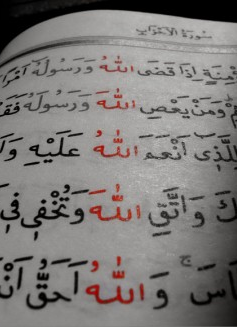 سُورَةُ الْأَحْزَابِ
مِنَةٍ إِذَا قَضَى اللَّهُ وَرَسُولُهُ أَمْرًا
وَمَنْ يَعْصِ اللَّهَ وَرَسُولَهُ فَقَ
لِلَّذِي أَنْعَمَ اللَّهُ عَلَيْهِ وَأَ
كَ وَاتَّقِ اللَّهَ وَتُخْفِي فِي
اسَ وَاللَّهُ أَحَقُّ أَنْ